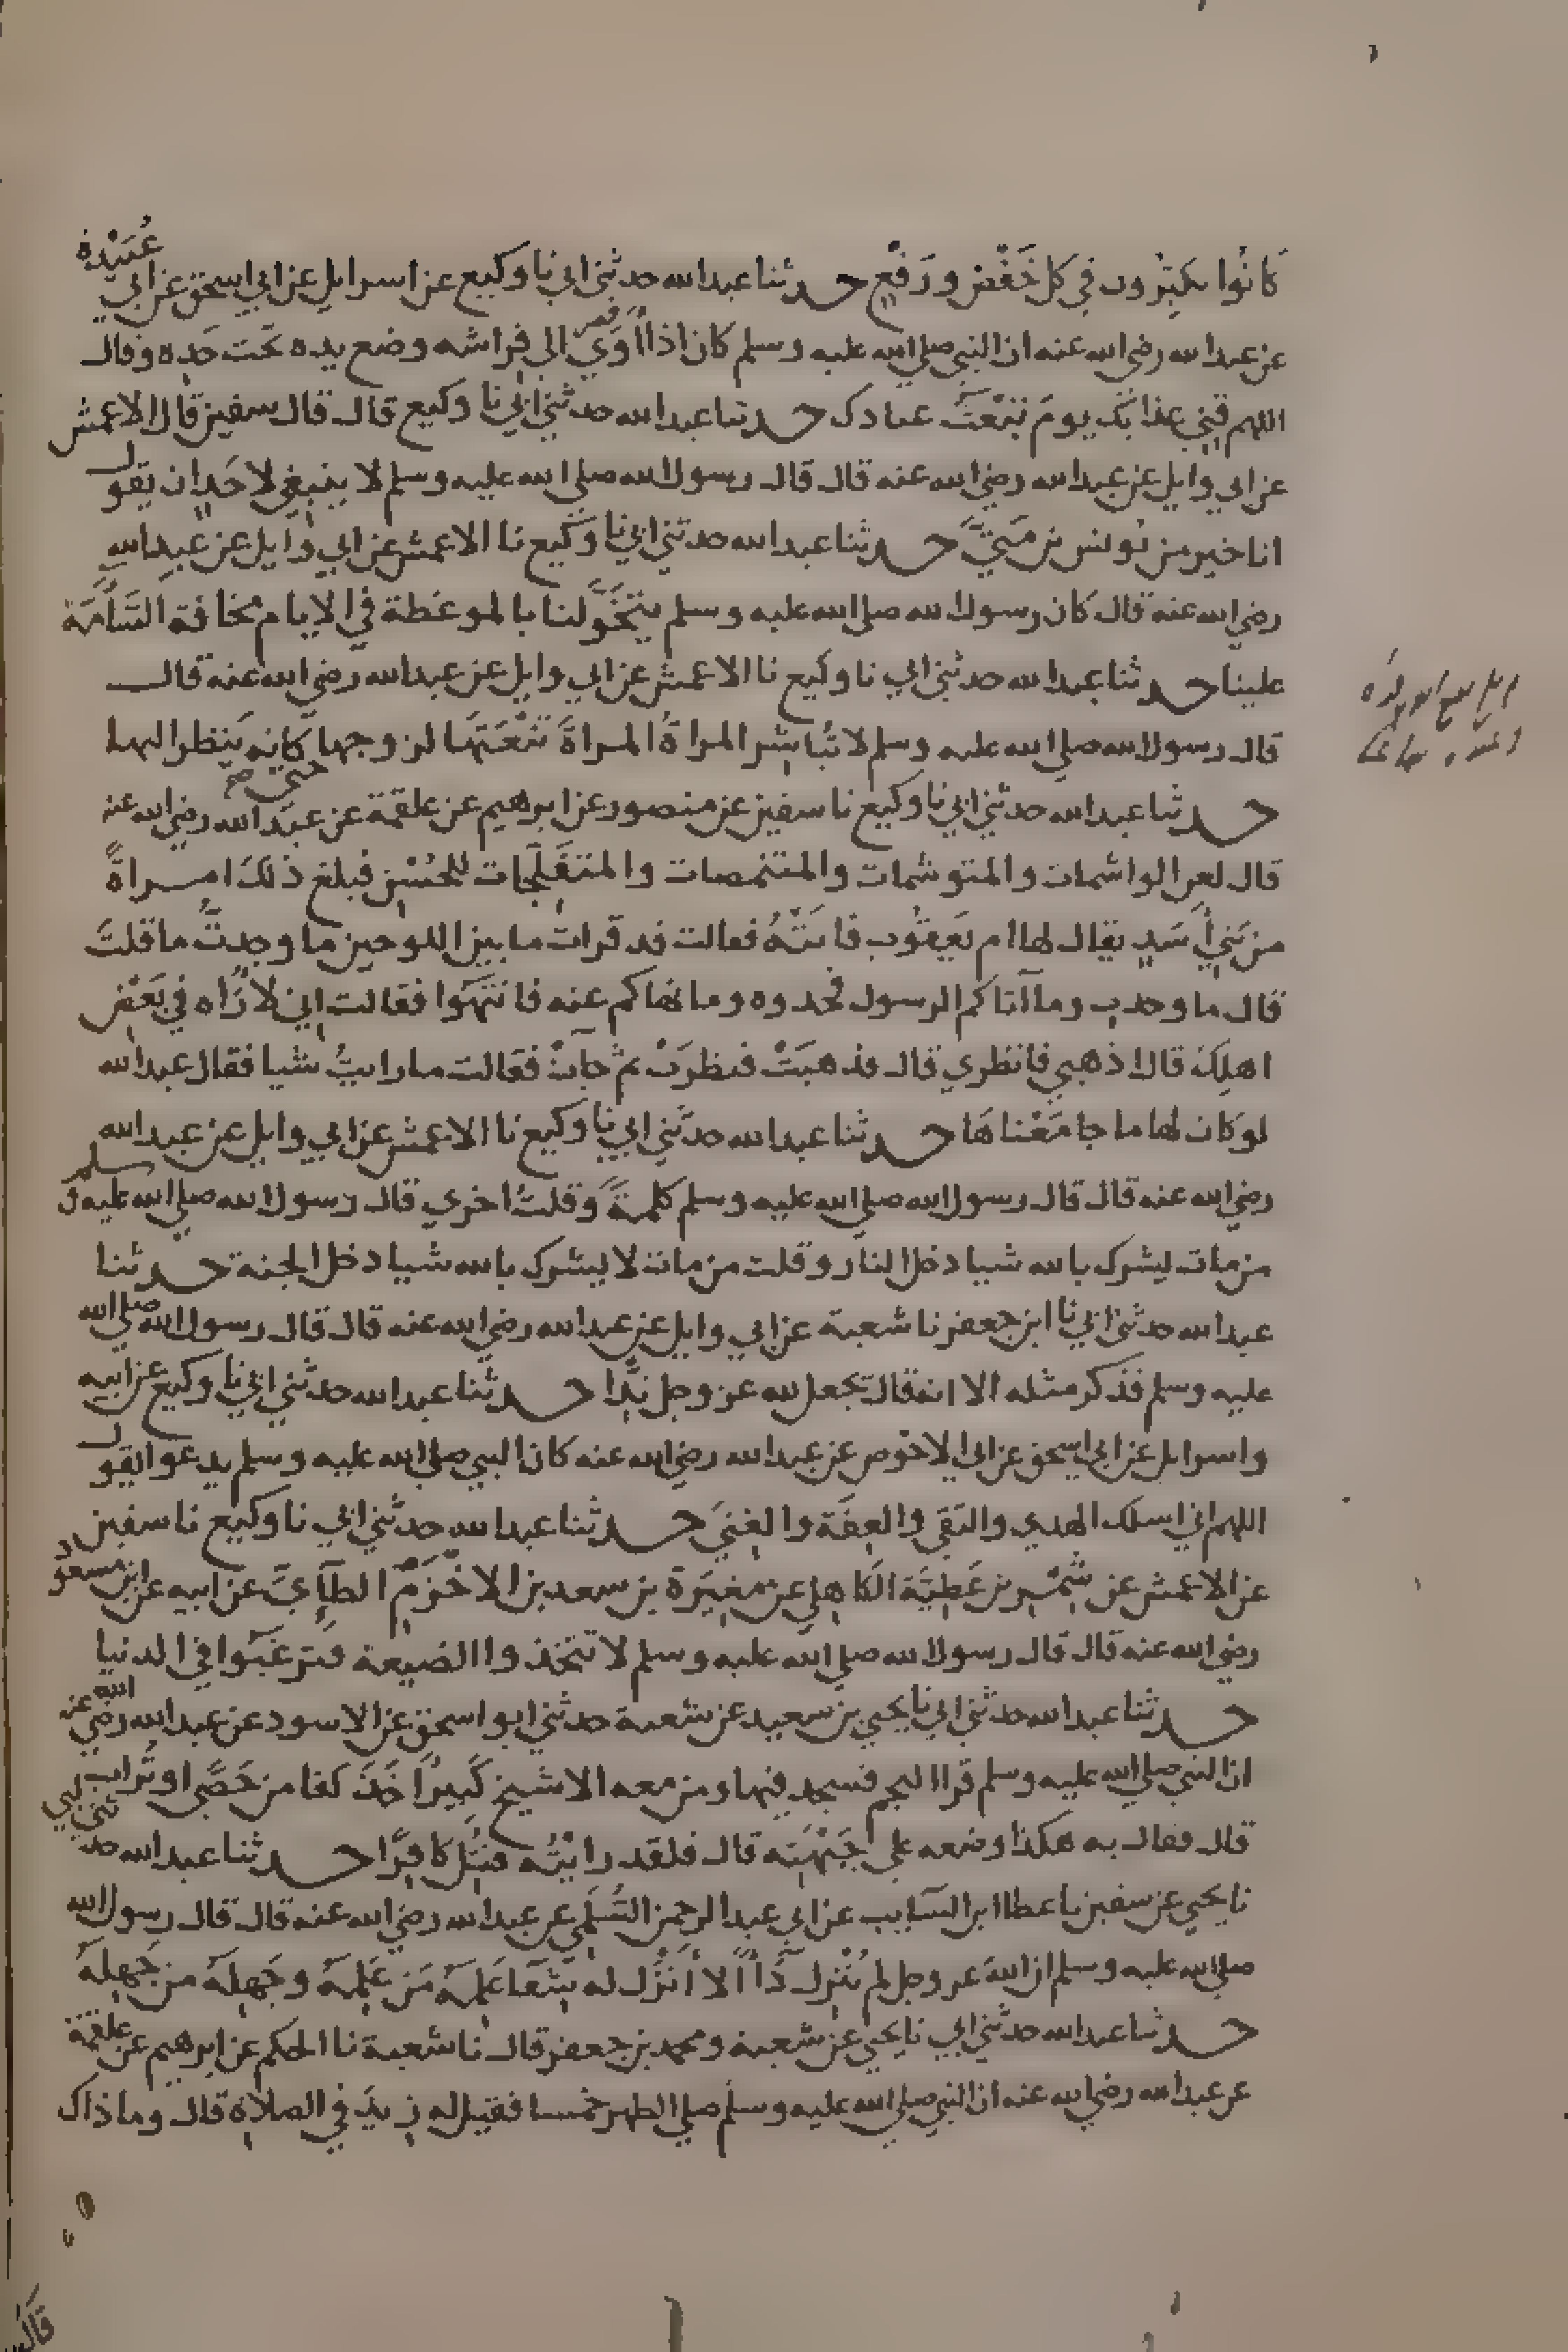 كَانُوا يكبِّرُون في كل خَفْضٍ ورَفْعٍ حدثنا عبدالله حدثني ابي نا وكيع عن اسرايل عن ابي اسحق عن ابي عُبَيْدة
عن عبدالله رضي الله عنه ان النبي صلي الله عليه وسلم كان اذا أَوَي الي فراشه وضع يده تحت خَدِه وقال
اللهم قِنِي عذابَك يومَ تَبْعَثُ عبادك حدثنا عبدالله حدثني ابي نا وكيع قال قال سفين قال الاعمش
عن ابي وايل عن عبدالله رضي الله عنه قال قال رسول الله صلي الله عليه وسلم لا ينبغي لاحَدٍ ان يقول
انا خير من يُونس بن مَتيَّ حدثنا عبدالله حدثني ابي نا وَكيع نا الاعمش عن ابي وايل عن عبدالله
رضي الله عنه قال كان رسول الله صلي الله عليه وسلم يتخَوَّلنا بالموعَظة في الايام مخافة السَّأمَة
علينا حدثنا عبدالله حدثني ابي نا وكيع نا الاعمش عن ابي وايل عن عبدالله رضي الله عنه قال
قال رسول الله صلي الله عليه وسلم لا تُباشِر المراةُ المراةَ تَنْعَتَها لزوجها كانه يَنظر اليها
حتي صح
حدثنا عبدالله حدثني ابي نا وكيع نا سفين عن منصور عن ابرهيم عن علقمة عن عبدالله رضي الله عنه
قال لعن الواشمات والمتوشمات والمتنمصات والمتفَلِّجات للحُسْنِ فبلغ ذلك امراةً
من بَنِي أَسَدٍ يقال لها ام يَعقُوب فاتَتْهُ فقالت قد قرات ما بين اللوحين ما وجدتُ ما قلتَ
قال ما وجدتِ وما آتاكم الرسول فخذوه وما نهاكم عنه فانتَهوا فقالت اِنِي لارُاه في بَعْضِ
اهلِكَ قال اذهبي فانظري قال فذهبَتْ فنظرَتْ ثم جآتْ فقالت ما رايتُ شيا فقال عبدالله
لو كان لها ما جامَعْناهَا حدثنا عبدالله حدثني ابي نا وكيع نا الاعمش عن ابي وايل عن عبدالله
رضي الله عنه قال قال رسول الله صلي الله عليه وسلم كلمةً وقلتُ اخري قال رسول الله صلي الله عليه وسلم
من مات يشرك بالله شيا دخل النار وقلت من مات لا يشرك بالله شيا دخل الجنة حدثنا
عبدالله حدثني ابي نا ابن جعفر نا شعبة عن ابي وايل عن عبدالله رضي الله عنه قال قال رسول الله صلي الله
عليه وسلم فذكر مثله الا انه قال يجعل لله عز وجل نِدًّا حدثنا عبدالله حدثني ابي نا وكيع عن ابيه
واسرايل عن ابي اسحق عن ابي الاحْوص عن عبدالله رضي الله عنه كان النبي صلي الله عليه وسلم يدعوا يقول
اللهم اني اسلك الهدي والتقي والعِفَة والغِنيَ حدثنا عبدالله حدثني ابي نا وكيع نا سفين
عن الاعمش عن شِمْر بن عَطِيَّة الكاهلي عن مغيَرة بن سعد بن الاخْزَم الطآءيَّ عن ابيه عن ابن مسعود
رضي الله عنه قال قال رسول الله صلي الله عليه وسلم لا تتخذوا الضيعة فترغَبُوا في الدنيا
حدثنا عبدالله حدثني ابي نا يحيي بن سعيد عن شعبة حدثني ابو اسحق عن الاسود عن عبدالله رضي الله عنه
ان النبي صلي الله عليه وسلم قرا النجم فسجد فيها ومن معه الا شيخ كَبيرٌ اخَذَ كفا من حَصًي او تُراب
قال فقال به هكذا وضعه علي جَبْهَتِه قال فلقد رايْتُه قُتِل كافِرًا حدثنا عبدالله حدثني ابي
نا يحيي عن سفين نا عطا ابن السايب عن ابي عبد الرحمن السُّلَمِي عن عبدالله رضي الله عنه قال قال رسول الله
صلي الله عليه وسلم ان اللهَ عز وجل لم يُنْزِل دَآءً الا أَنْزَل له شِفَاءً عَلِمَهُ مَن عَلِمَهُ وجَهِلَهُ من جَهِلَهُ
حدثنا عبدالله حدثني ابي نا يحيي عن شعبة ومحمد بن جعفر قال نا شعبة نا الحكم عن ابرهيم عن علقمة
عن عبدالله رضي الله عنه ان النبي صلي الله عليه وسلم صلي الظهر خمسا فقيل له زِيدَ في الصلاةِ قال وما ذاك